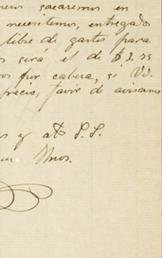 sacaremos en
necesitemos, entregado
libre de gastos para
será el de $ 2.25
por cabeza, si Vd.
precio, favor de avisarnos
y att. S. S.
Hnos.